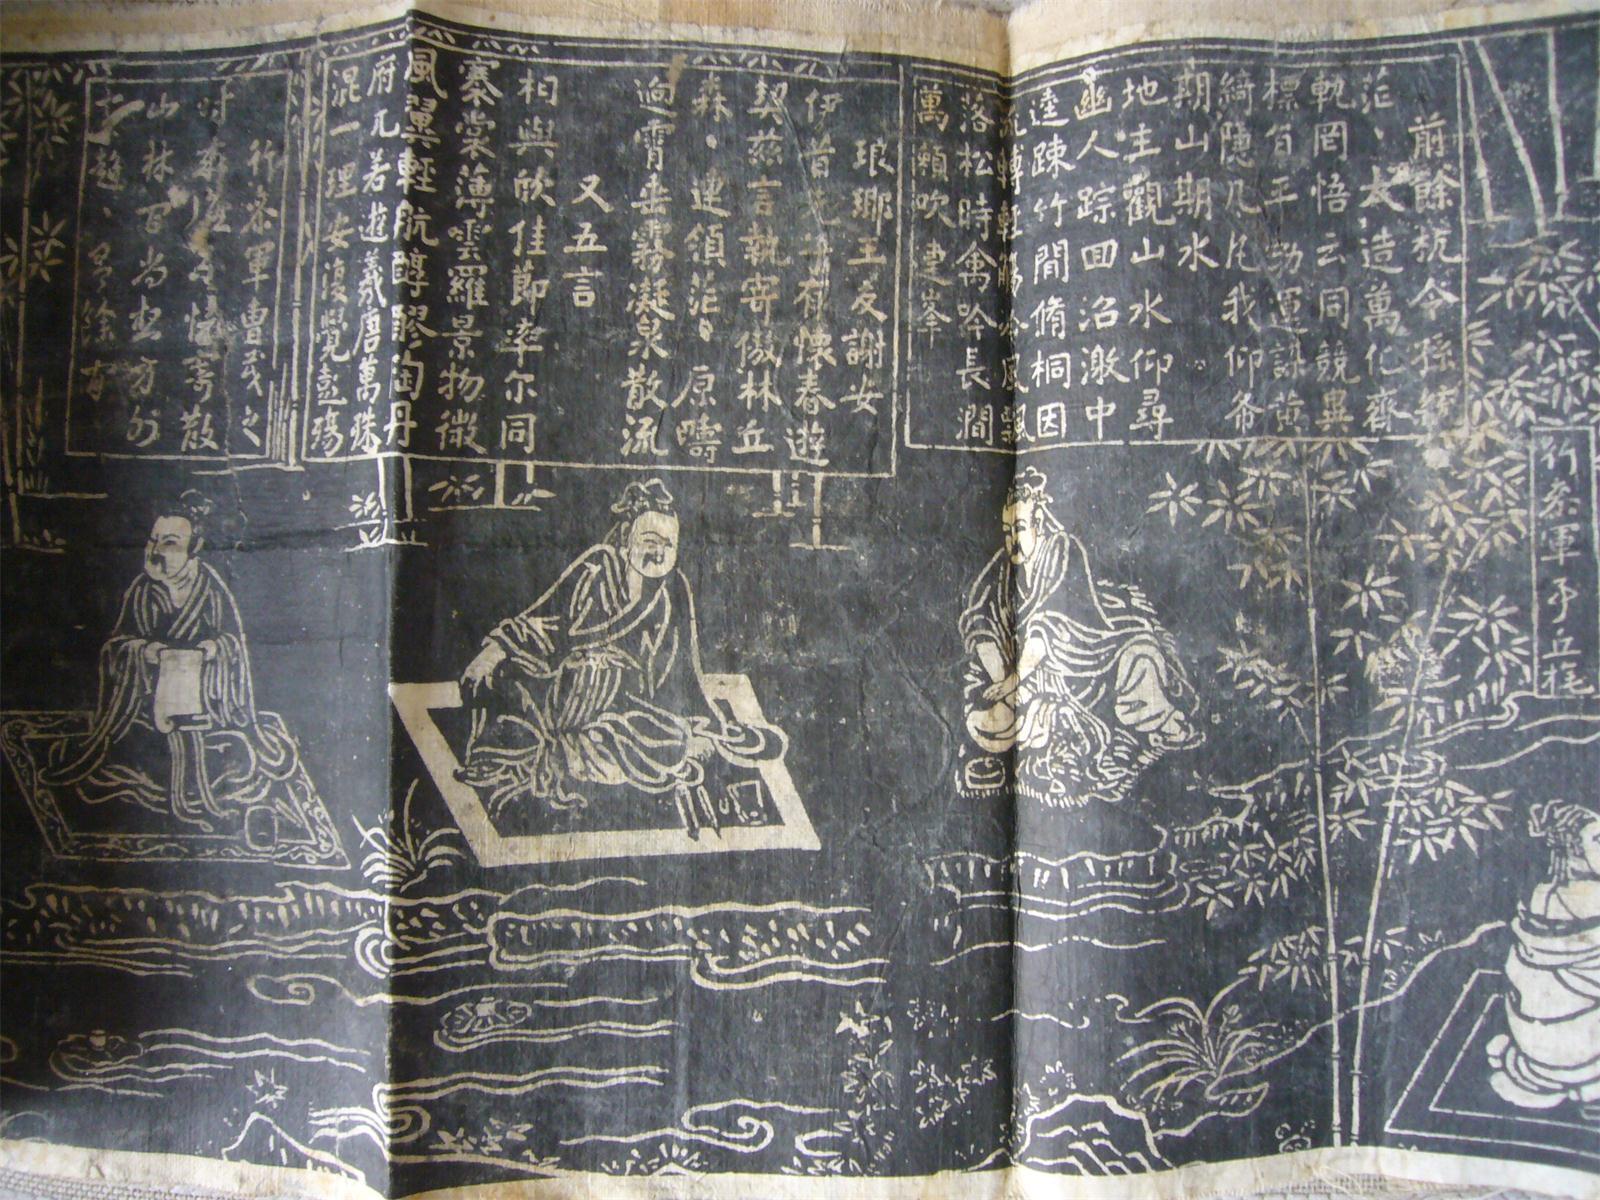 行叅軍事丘旄
前餘杭令孫統
茫、大造萬化齊
軌罔悟玄同競異
標旨平勃運謀黃
綺隱凡凡我仰希
期山期水
地主觀山水仰尋
幽人踪回沼激中
逵疎竹間脩桐因
流轉輕觴冷風飄
落松時禽吟長澗
萬籟吹連峯
琅瑯王友謝安
伊昔先子有懷春遊
契茲言執寄傲林丘
森、連領茫、原疇
逈霄垂霧凝泉散流
又五言
相與欣佳節率尔同
褰裳薄雲羅景物微
風翼輕航醇醪陶丹
府兀若遊羲唐萬殊
混一理安復覺彭殤
行叅軍曹茂之
時來誰不懷寄散
山林間尚想方外
超、有餘